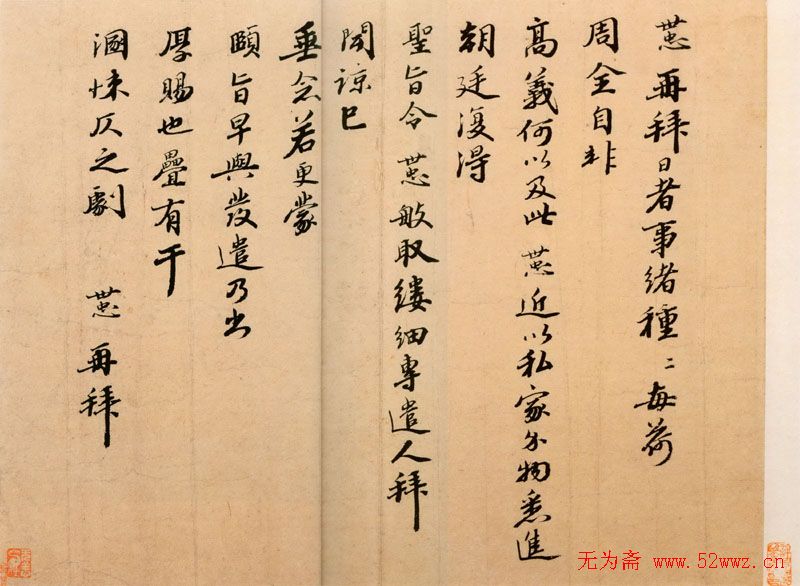 再拜日者事緒種〻每荷
周全自非
高義何以及此 近以私家物悉進
朝廷復得
聖旨令 取縷細專遣人拜
聞諒已
垂念若更蒙
頤旨早與發遣乃出
厚賜也疊有干
溷悚仄之劇 再拜
无为斋 www.52wwz.cn